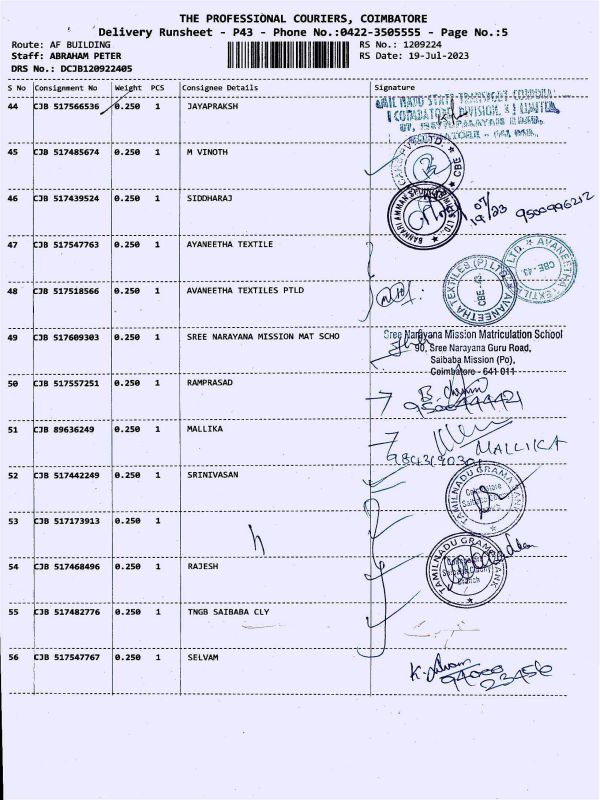 THE PROFESSIONAL COURIERS, COIMBATORE
Delivery Runsheet - P43 - Phone No.:0422-3505555 - Page No.:5
Route: AF BUILDING RS No.: 1209224
Staff: ABRAHAM PETER RS Date: 19-Jul-2023
DRS No.: DCJB120922405
S No Consignment No Weight PCS Consignee Details Signature
44 CJB 517566536 0.250 1 JAYAPRAKSH
45 CJB 517485674 0.250 1 M VINOTH
CBE
46 CJB 517439524 0.250 1 SIDDHARAJ
9500996212
47 CJB 517547763 0.250 1 AYANEETHA TEXTILE
48 CJB 517518566 0.250 1 AVANEETHA TEXTILES PTLD
AVANEETHA TEXTILES (P) LTD.
CBE - 43.
49 CJB 517609303 0.250 1 SREE NARAYANA MISSION MAT SCHO
Sree Narayana Mission Matriculation School
90, Sree Narayana Guru Road,
Saibaba Mission (Po),
Coimbatore - 641 011
50 CJB 517557251 0.250 1 RAMPRASAD
51 CJB 89636249 0.250 1 MALLIKA
MALLIKA
52 CJB 517442249 0.250 1 SRINIVASAN
TAMILNADU GRAMA BANK
53 CJB 517173913 0.250 1
54 CJB 517468496 0.250 1 RAJESH
TAMILNADU GRAMA BANK
Branch
55 CJB 517482776 0.250 1 TNGB SAIBABA CLY
56 CJB 517547767 0.250 1 SELVAM
K. Selvam
94000
23456